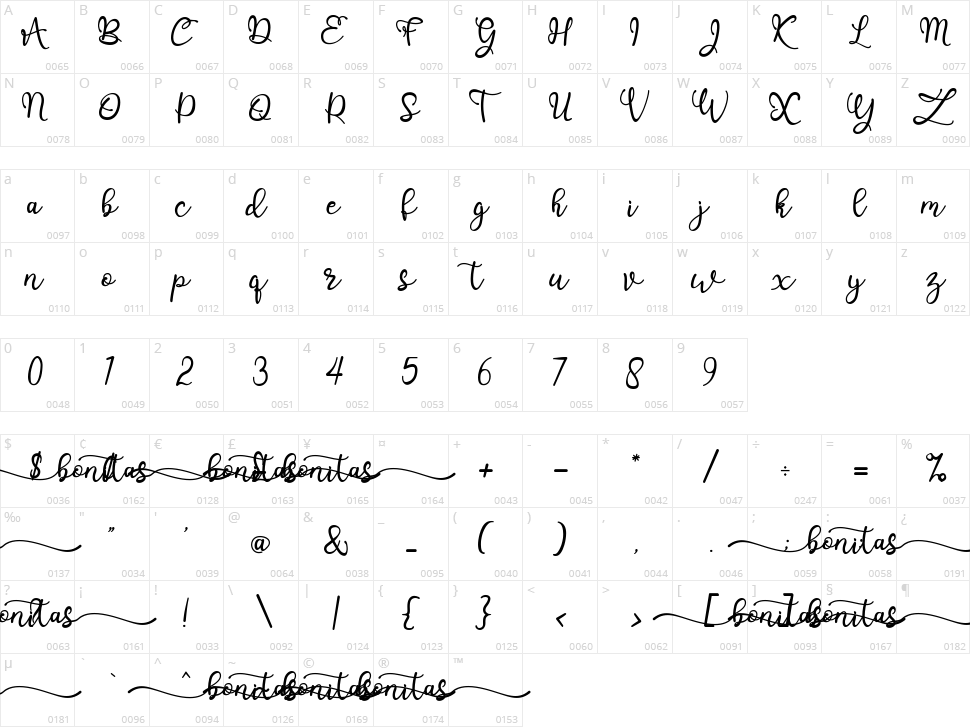 A B C D E F G H I J K L M
A B C D E F G H I J K L M
0065 0066 0067 0068 0069 0070 0071 0072 0073 0074 0075 0076 0077
N O P Q R S T U V W X Y Z
N O P Q R S T U V W X Y Z
0078 0079 0080 0081 0082 0083 0084 0085 0086 0087 0088 0089 0090
a b c d e f g h i j k l m
a b c d e f g h i j k l m
0097 0098 0099 0100 0101 0102 0103 0104 0105 0106 0107 0108 0109
n o p q r s t u v w x y z
n o p q r s t u v w x y z
0110 0111 0112 0113 0114 0115 0116 0117 0118 0119 0120 0121 0122
0 1 2 3 4 5 6 7 8 9
0 1 2 3 4 5 6 7 8 9
0048 0049 0050 0051 0052 0053 0054 0055 0056 0057
$ ¢ € £ ¥ ¤ + - * / ÷ = %
$ bonitas bonitas bonitas + - * / ÷ = %
0036 0162 0128 0163 0165 0164 0043 0045 0042 0047 0247 0061 0037
‰ " ' @ & _ ( ) , . ; : ¿
" ' @ & _ ( ) , . ; bonitas
0137 0034 0039 0064 0038 0095 0040 0041 0044 0046 0059 0058 0191
? ¡ ! \ | { } < > [ ] § ¶
bonitas ! \ | { } < > [ bonitas ] bonitas
0063 0161 0033 0092 0124 0123 0125 0060 0062 0091 0093 0167 0182
µ ` ^ ~ © ® ™
` ^ bonitas bonitas bonitas
0181 0096 0094 0126 0169 0174 0153